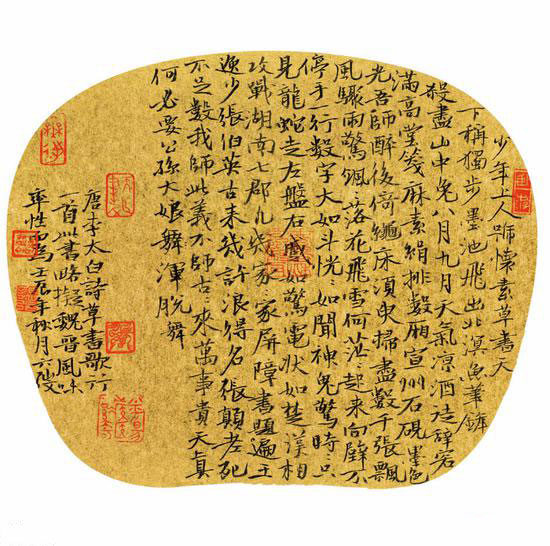 少年上人號懷素草書天
下稱獨步墨池飛出北溟魚筆鋒
殺盡山中兔八月九月天氣涼酒徒辭客
滿高堂箋麻素絹排數廂宣州石硯墨色
光吾師醉後倚繩床須臾掃盡數千張飄
風驟雨驚颯落花飛雪何茫〻起來向壁不
停手一行數字大如斗恍〻如聞神鬼驚時〻只
見龍蛇走左盤右蹙如驚電狀如楚漢相
攻戰湖南七郡凡幾家家屏障書題遍王
逸少張伯英古來幾許浪得名張顛老死
不足數我師此義不師古〻來萬事貴天真
何必要公孫大娘舞渾脫舞
唐李太白詩草書歌行
一首此書略擬魏晉風味
率性而為壬辰年秋月